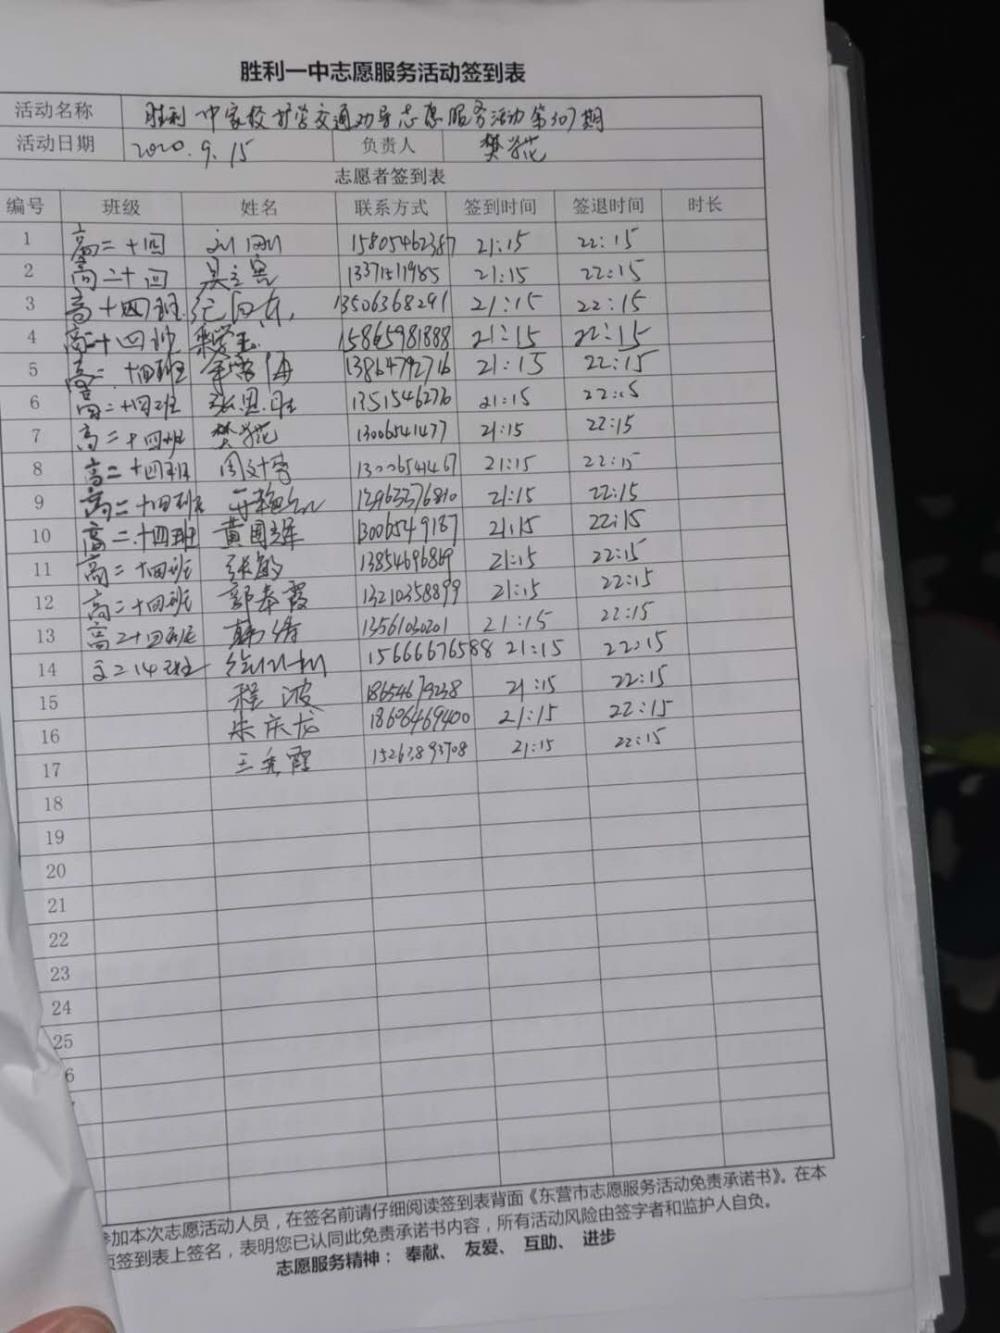 胜利一中志愿服务活动签到表
活动名称 胜利一中家校 护学交通劝导志愿服务活动第307期
活动日期 2020.9.15 负责人 樊
志愿者签到表
编号 班级 姓名 联系方式 签到时间 签退时间 时长
1 高二十四 刘刚 15805462387 21:15 22:15
2 高二十四 13371511985 21:15 22:15
3 高十四班 13506368291 21:15 22:15
4 高二十四 15865981888 21:15 22:15
5 高二十四班 13864792716 21:15 22:15
6 高二十四班 张思 1351546276 21:15 22:15
7 高二十四班 樊 13006541477 21:15 22:15
8 高二十四班 周 13006541467 21:15 22:15
9 高二十四班 21:15 22:15
10 高二十四班 黄国 13006549187 21:15 22:15
11 高二十四班 张敏 13854696869 21:15 22:15
12 高二十四班 郭春霞 13210358899 21:15 22:15
13 高二十四班 韩 13561030201 21:15 22:15
14 高二14班 15666676588 21:15 22:15
15 程波 18654679238 21:15 22:15
16 朱庆龙 18606469400 21:15 22:15
17 霞 15263893708 21:15 22:15
18
19
20
21
22
23
24
25
6
参加本次志愿活动人员，在签名前请仔细阅读签到表背面《东营市志愿服务活动免责承诺书》。在本
页签到表上签名，表明您已认同此免责承诺书内容，所有活动风险由签字者和监护人自负。
志愿服务精神： 奉献、 友爱、 互助、 进步